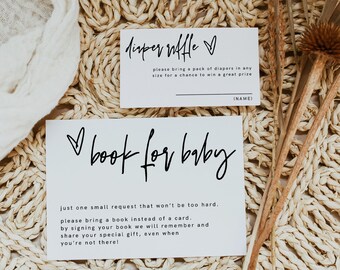 diaper raffle
please bring a pack of diapers in any
size for a chance to win a great prize
(NAME)
book for baby
just one small request that won't be too hard.
please bring a book instead of a card.
by signing your book we will remember and
share your special gift, even when
you're not there!